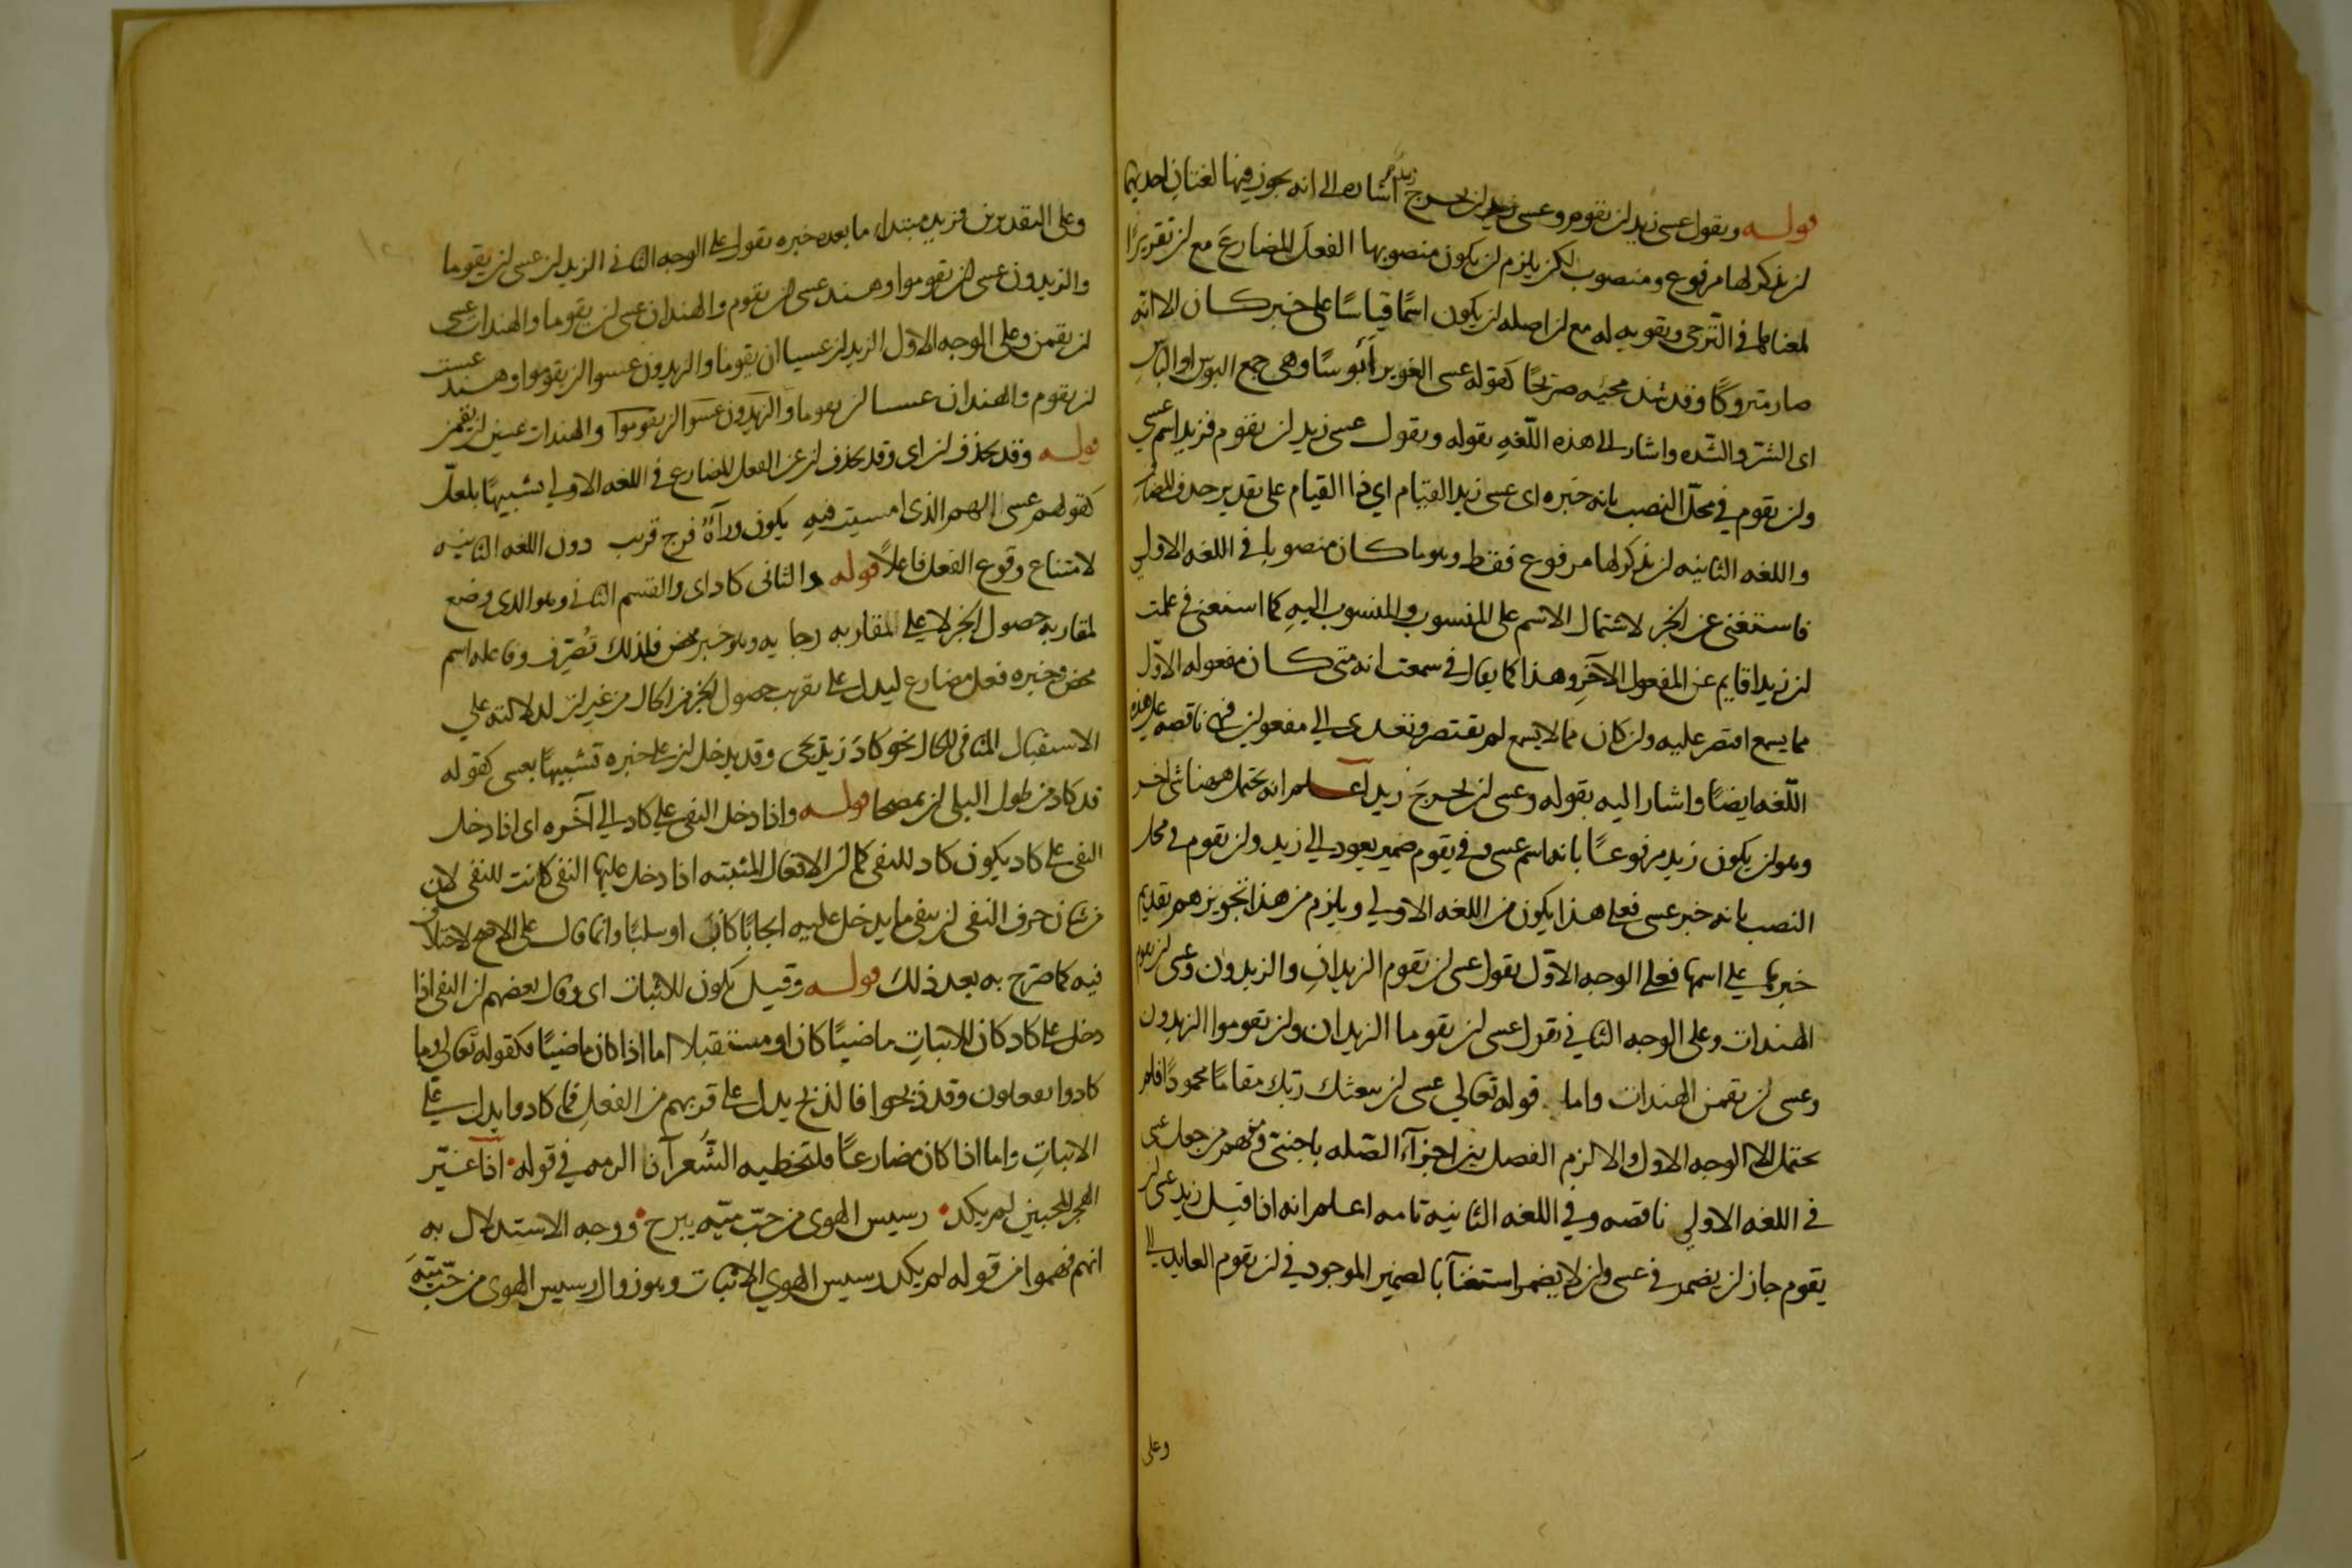 قوله ويقول عسى زيد ان يقوم وعسى ان يخرج زيد اشاره الى انه يجوز فيها لغتان احديهما
ان يذكر لها مرفوع ومنصوب لكن يلزم ان يكون منصوبها الفعل المضارع مع ان تقريرًا
لمعناها في الترجى وتقويه له مع ان اصله ان يكون اسمًا قياسًا على خبر كان الا انه
صار متروكًا وقد شذ مجيئه صريحًا كقوله عسى الغوير أبوسًا وهى جمع البوس او الباس
اى الشر والشده واشار الى هذه اللغه بقوله ويقول عسى زيد ان يقوم فزيد اسم عسى
وان يقوم في محل النصب بانه خبره اى عسى زيد القيام اي ذا القيام على تقدير حذف المضاف
واللغه الثانيه ان يذكر لها مرفوع فقط وهو ما كان منصوبا في اللغه الاولي
فاستغنى عن الخبر لاشتمال الاسم على المنسوب والمنسوب اليه كما استغنى في علمت
ان زيدا قايم عن المفعول الآخر وهذا كما يقال في سمعت انه متى كان مفعوله الاول
مما يسمع اقتصر عليه وان كان مما لا يسمع لم يقتصر وتعدى الي مفعولين فهى ناقصه على هذه
اللغه ايضًا واشار اليه بقوله وعسى ان يخرج زيد اعلم انه يحتمل ههنا شئ اخر
وهو ان يكون زيد مرفوعًا بانه اسم عسى وفي يقوم ضمير يعود الي زيد وان يقوم في محل
النصب بانه خبر عسى فعلى هذا يكون من اللغه الاولي ويلزم من هذا تجويزهم تقديم
خبرها علي اسمها فعلى الوجه الاول يقول عسى ان يقوم الزيدان والزيدون وعسى ان يقوم
الهندات وعلى الوجه الثاني يقول عسى ان يقوما الزيدان وان يقوموا الزيدون
وعسى ان يقمن الهندات واما قوله تعالي عسى ان يبعثك ربك مقامًا محمودًا فلم
يحتمل الا الوجه الاول والا لزم الفصل بين اجزآء الصله باجنبى ومنهم من جعل عسى
في اللغه الاولي ناقصه وفي اللغه الثانيه تامه اعلم انه اذا قيل زيد عسى ان
يقوم جاز ان يضمر في عسى وان لا يضمر استغنآ بالضمير الموجود في ان يقوم العايد الى
وعلى
وعلى التقديرين فزيد مبتدا ما بعده خبره يقول على الوجه الثاني الزيدان عسى ان يقوما
والزيدون عسى ان يقوموا وهند عسى ان يقوم والهندان عسى ان يقوما والهندات عسى
ان يقمن وعلى الوجه الاول الزيدان عسيا ان يقوما والزيدون عسوا ان يقوموا وهند عست
ان يقوم والهندان عستا ان يقوما والزيدون عسوا ان يقوموا والهندات عسين ان يقمن
قوله وقد يحذف ان اى وقد يحذف ان عن الفعل المضارع في اللغه الاولي تشبيهًا بلعل
كقولهم عسى الهم الذى امسيت فيه يكون ورآه فرج قريب دون اللغه الثانيه
لامتناع وقوع الفعل فاعلًا قوله والثانى كاد اى والقسم الثاني وهو الذى وضع
لمقاربه حصول الخبر لا على المقاربه رجا يه وهو خبر محض فلذلك تُصرّف وفاعله اسم
محض وخبره فعل مضارع ليدل على تقريب حصول الخبر من الحال من غير ان لدلالته علي
الاستقبال المنافى للحال نحو كاد زيد يجى وقد يدخل ان على خبره تشبيهًا بعسى كقوله
قد كاد من طول البلى ان يمصحا قوله واذا دخل النفى علي كاد الي آخره اى اذا دخل
النفى على كاد يكون كاد للنفى كما ان الافعال المثبته اذا دخل عليها النفى كانت للنفى لان
من شان حرف النفى ان ينفى ما يدخل عليه ايجابًا كان او سلبًا وانما قال على الاصح لاختلاف
فيه كما صرح به بعد ذلك قوله وقيل يكون للاثبات اى وقال بعضهم ان النفى اذا
دخل على كاد كان للاثبات ماضيًا كان او مستقبلا اما اذا كان ماضيًا فكقوله تعالى وما
كادوا يفعلون وقد ذبحوا فالذبح يدل على قربهم من الفعل فما كادوا يدل على
الاثبات واما اذا كان مضارعًا فلتخطيه الشعرآ ذا الرمه في قوله اذا غيّر
الهجر المحبين لم يكد رسيس الهوى من حب ميّه يبرح ووجه الاستدلال به
انهم فهموا من قوله لم يكد رسيس الهوي الاثبات وهو زوال رسيس الهوى من حبّ ميّه